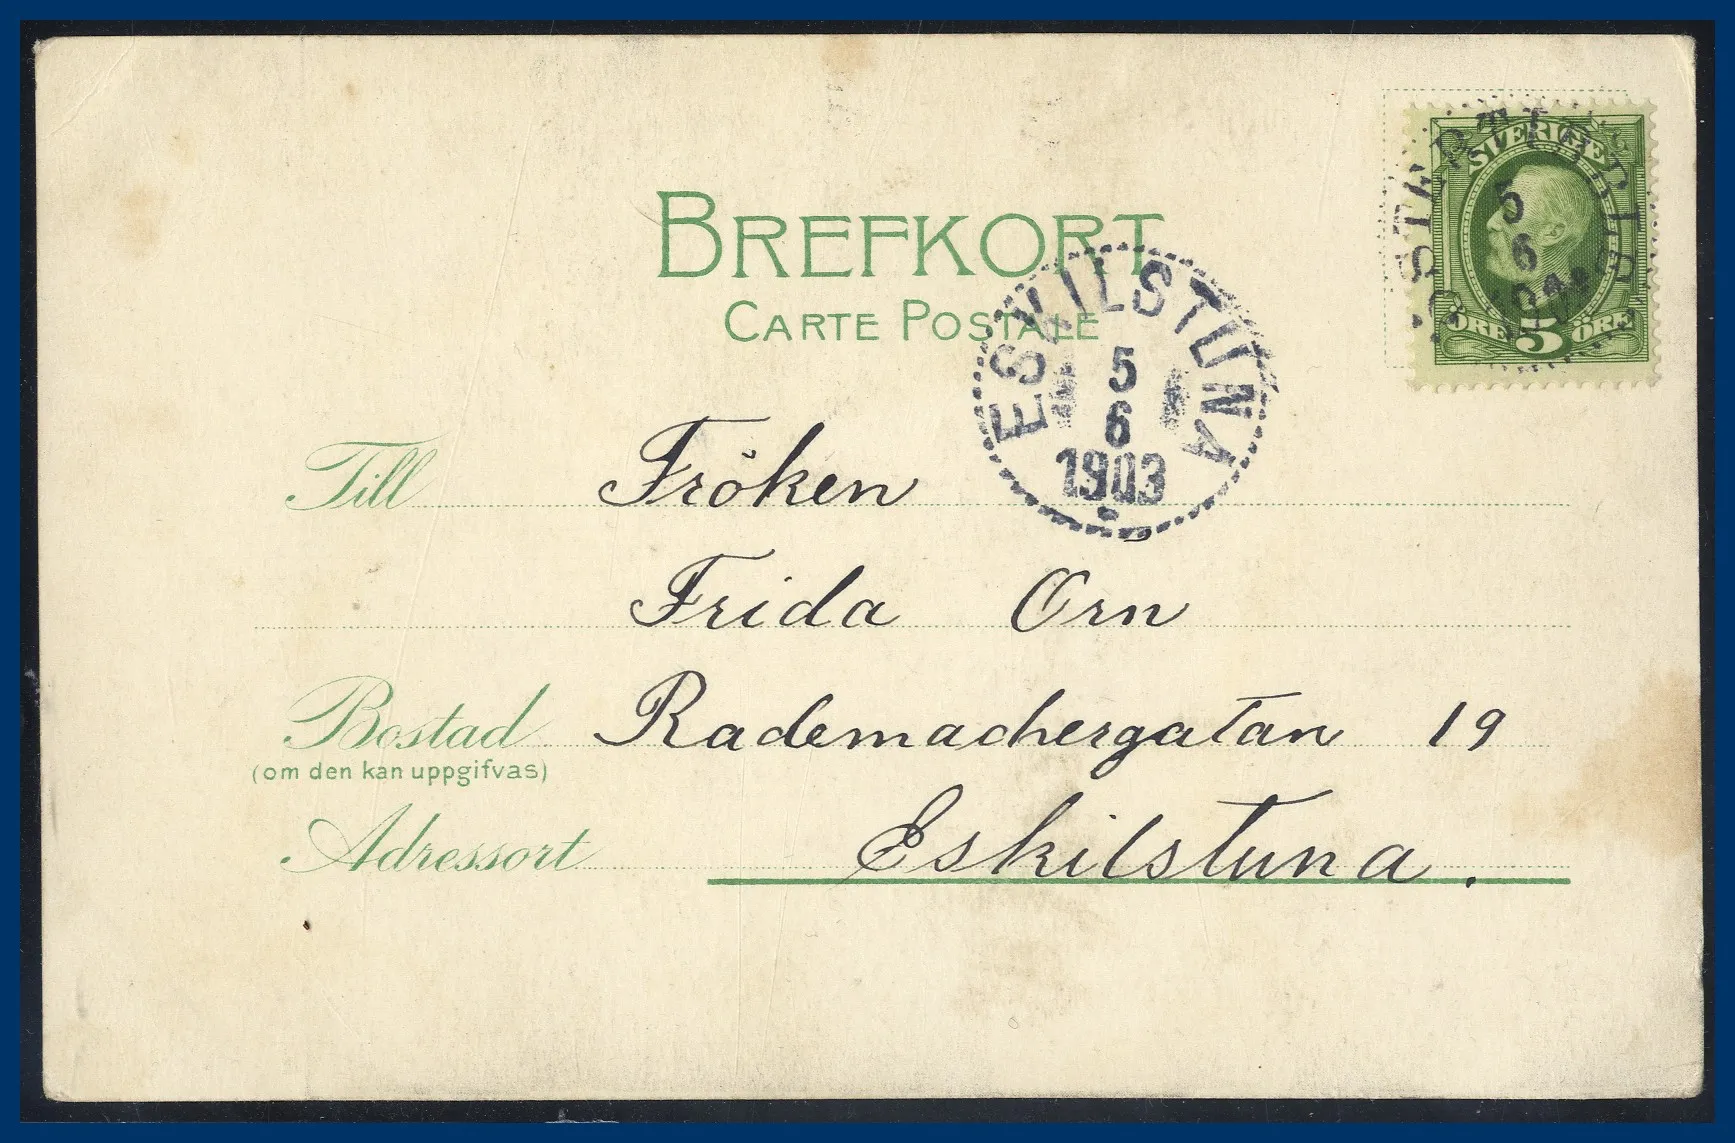 BREFKORT
CARTE POSTALE
SVERIGE
5
6
ÖRE 5 ÖRE
ESKILSTUNA
5
6
1903
Till Fröken
Frida Örn
Bostad Rademachergatan 19
(om den kan uppgifvas)
Adressort Eskilstuna.